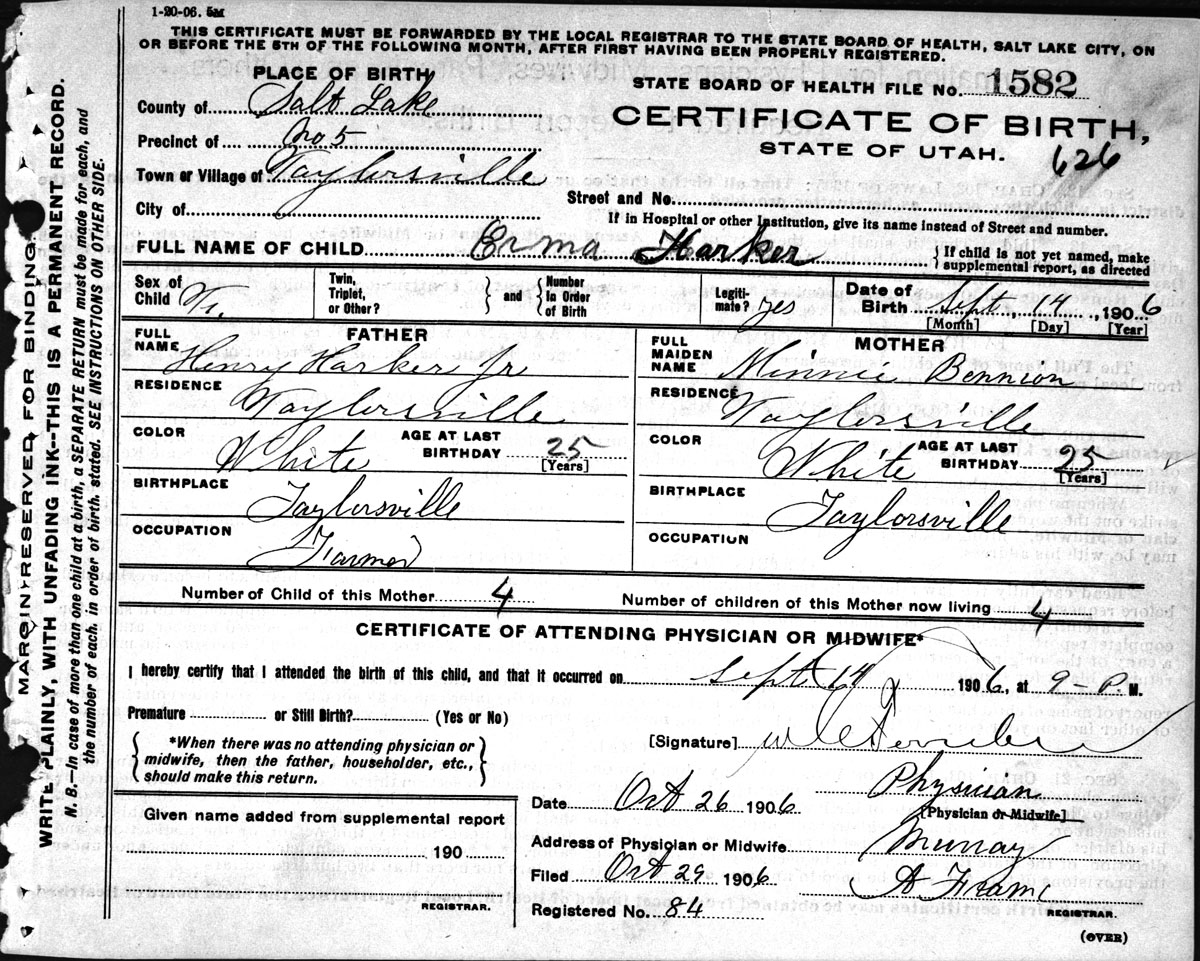 1-20-06. 5M
THIS CERTIFICATE MUST BE FORWARDED BY THE LOCAL REGISTRAR TO THE STATE BOARD OF HEALTH, SALT LAKE CITY, ON
OR BEFORE THE 5TH OF THE FOLLOWING MONTH, AFTER FIRST HAVING BEEN PROPERLY REGISTERED.
MARGIN RESERVED FOR BINDING.
WRITE PLAINLY, WITH UNFADING INK—THIS IS A PERMANENT RECORD.
N. B.—In case of more than one child at a birth, a SEPARATE RETURN must be made for each, and
the number of each. in order of birth. stated. SEE INSTRUCTIONS ON OTHER SIDE.
PLACE OF BIRTH
County of Salt Lake
Precinct of No 5
Town or Village of Taylorsville
City of
STATE BOARD OF HEALTH FILE No. 1582
CERTIFICATE OF BIRTH,
STATE OF UTAH.
626
Street and No.
If in Hospital or other Institution, give its name instead of Street and number.
FULL NAME OF CHILD Erma Harker { If child is not yet named, make
supplemental report, as directed
Sex of
Child
Twin,
Triplet,
or Other? } and { Number
In Order
of Birth
Legiti-
mate? yes
Date of
Birth Sept. 14, 1906
[Month] [Day] [Year]
FATHER
FULL
NAME Henry Harker Jr
RESIDENCE Taylorsville
COLOR White AGE AT LAST
BIRTHDAY 25
[Years]
BIRTHPLACE Taylorsville
OCCUPATION Farmer
MOTHER
FULL
MAIDEN
NAME Minnie Bennion
RESIDENCE Taylorsville
COLOR White AGE AT LAST
BIRTHDAY 25
[Years]
BIRTHPLACE Taylorsville
OCCUPATION
Number of Child of this Mother 4 Number of children of this Mother now living 4
CERTIFICATE OF ATTENDING PHYSICIAN OR MIDWIFE*
I hereby certify that I attended the birth of this child, and that it occurred on Sept 14 1906, at 9-P. M.
Premature or Still Birth? (Yes or No)
{ *When there was no attending physician or
midwife, then the father, householder, etc.,
should make this return. }
[Signature]
Physician
[Physician or Midwife]
Date Oct 26 1906
Address of Physician or Midwife Murray
Filed Oct 29 1906 A Frame
REGISTRAR.
Registered No. 84
Given name added from supplemental report
190
REGISTRAR.
(OVER)